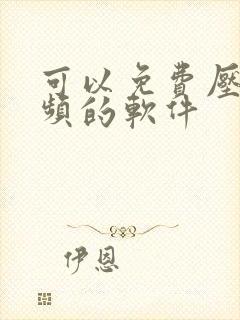 可以免費壓
頻的軟件
伊恩